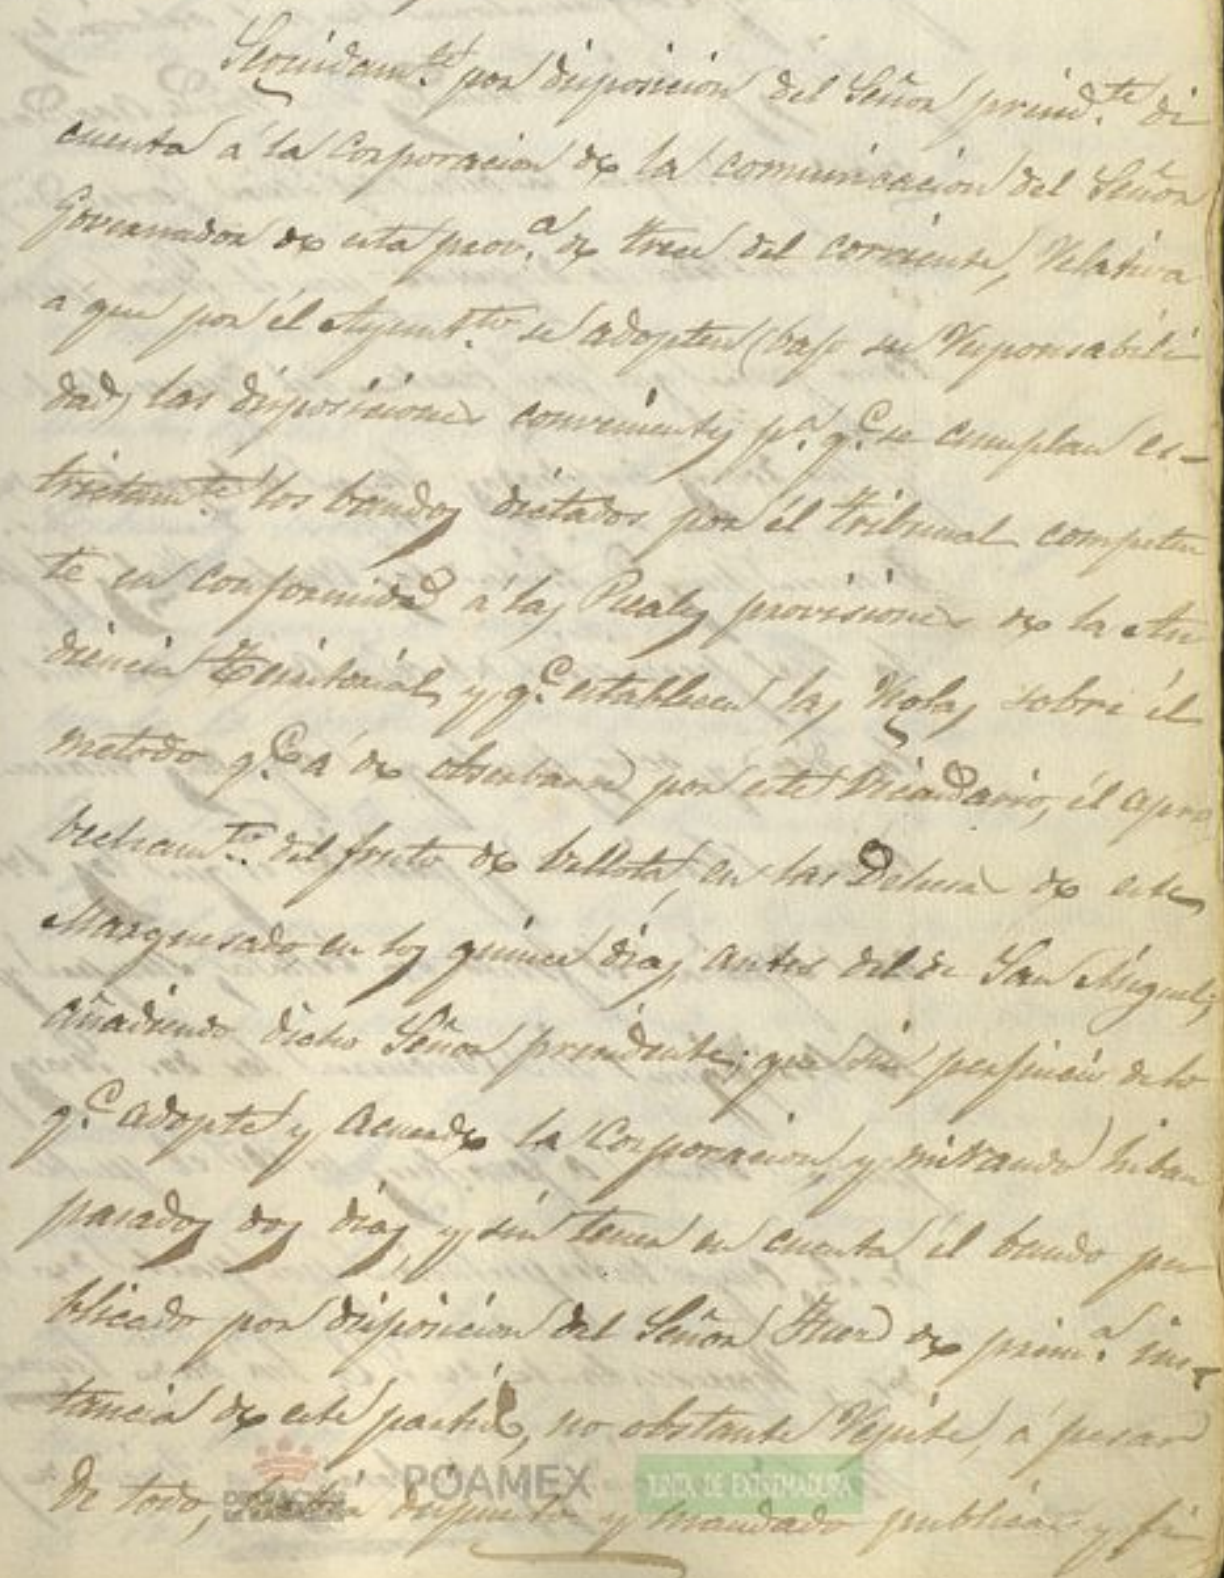 Seguidam.te por disposicion del Señor presid.te di
cuenta á la Corporacion de la comunicacion del Señor
Governador de esta prov.a de trece del corriente, Relativa
á que por él Ayunt.to se adopten (bajo su Responsabili
dad) las disposiciones convenientes p.a q.e se cumplan es-
trictam.te los bandos dictados por él tribunal competen
te en conformidad á las Reales provisiones de la Au
diencia Territorial y q.e establecen las Reglas sobre él
metodo q.e á de obserbarse por este Vecindario, él apro
vecham.to del fruto de bellota, en las Dehesas de este
Marquesado en los quince dias antes del de San Miguel;
añadiendo dicho Señor presidente; que sin perjuicio de lo
q.e adopte y Acuerde la Corporacion, y mirando hiban
pasados dos dias, y sin tener en cuenta él bando pu
blicado por disposicion del Señor Juez de prim.a ins
tancia de este partido, no obstante Repite, á pesar
de todo, habia dispuesto y mandado publicar y fi
DIPUTACIÓN DE BADAJOZ
POAMEX
JUNTA DE EXTREMADURA